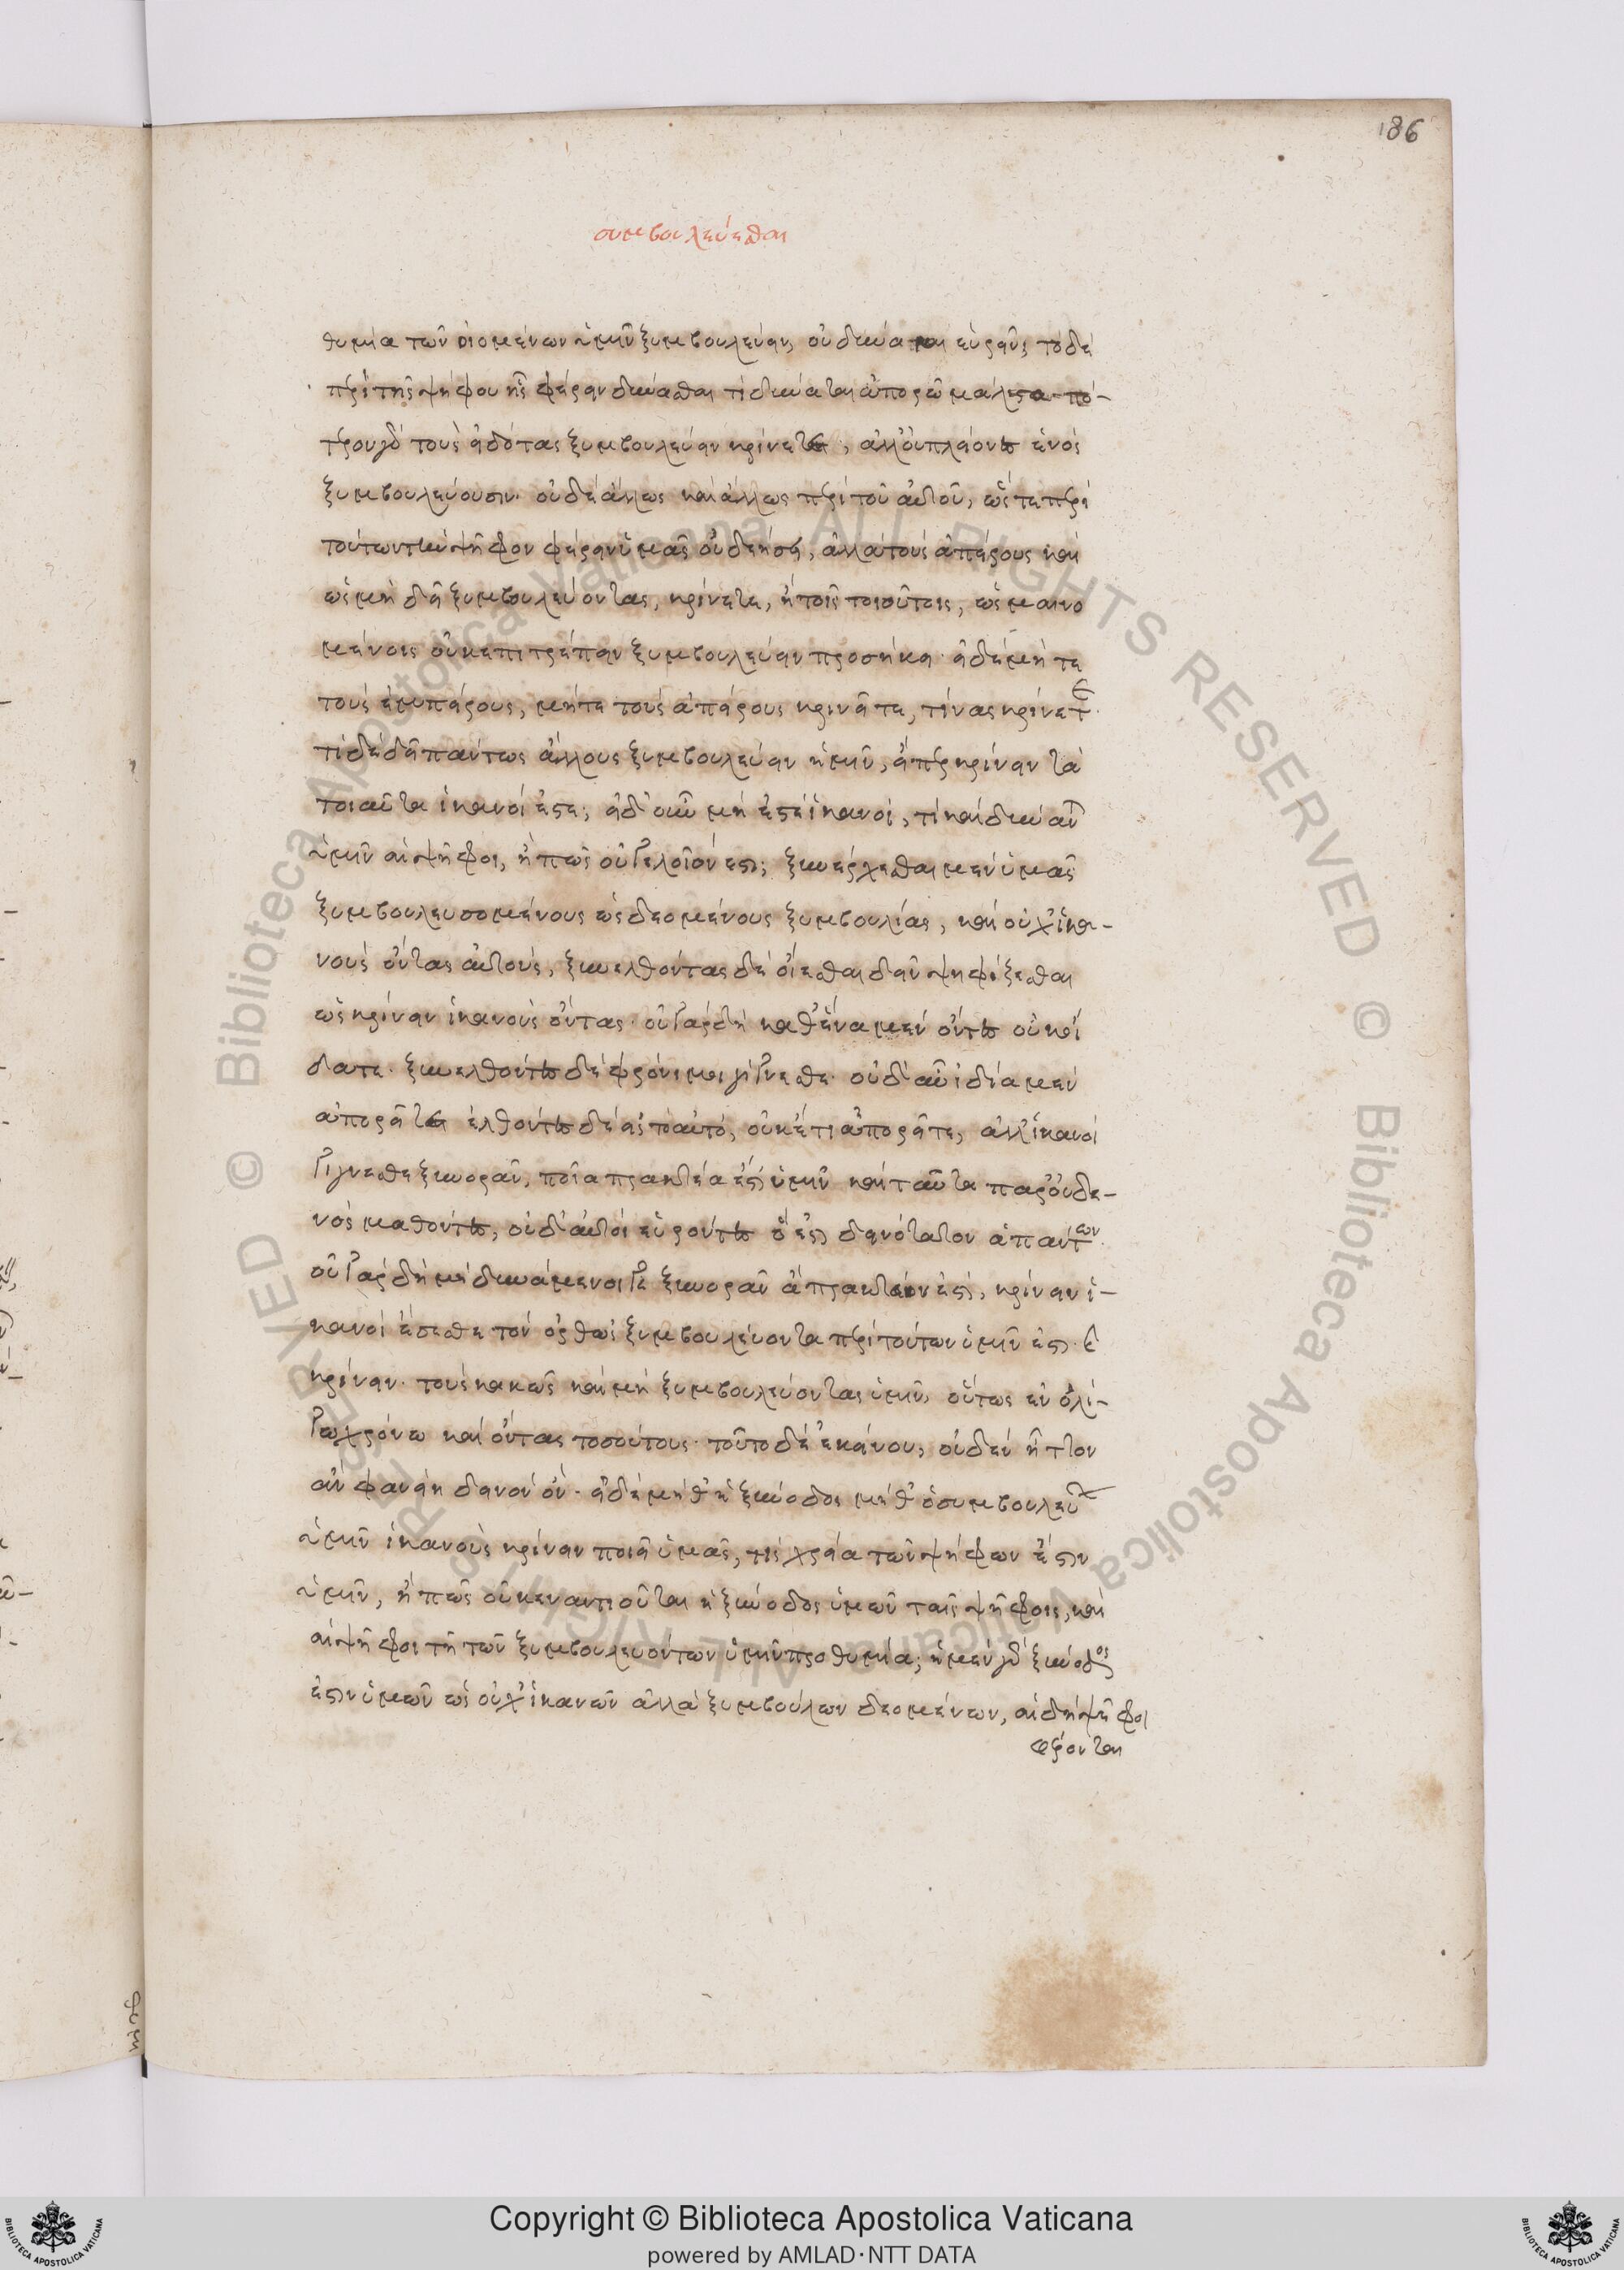 186
συμβουλεύεσθαι
θυμία τῶν οἰομένων ὑμῖν ξυμβουλεύειν, οὐ δύναμαι εὑρεῖν; τὸ δὲ
περὶ τῆς ψήφου ἧς φέρειν δύνασθαι τί δύναται ἀπορῶ μάλιστα πό-
τερον γὰρ τοὺς εἰδότας ξυμβουλεύειν κρίνετε, ἀλλ' οὐ πλείοντες ἑνὸς
ξυμβουλεύουσιν. οὐδὲ ἄλλως καὶ ἄλλως περὶ τοῦ αὐτοῦ, ὥστε περὶ
τούτων τὴν ψῆφον φέρειν ὑμᾶς οὐ δεήσει, ἀλλὰ τοὺς ἀπείρους καὶ
ὡς μὴ δεῖ ξυμβουλεύοντας, κρίνετε, ἢ τοῖς τοιούτοις, ὡς μαινο
μένοις οὐκ ἐπιτρέπειν ξυμβουλεύειν προσήκει· εἰ δὲ μήτε
τοὺς ἐμπείρους, μήτε τοὺς ἀπείρους κρινεῖτε, τίνας κρίνετε·
τί δὲ δεῖ παντως ἄλλους ξυμβουλεύειν ἡμῖν, εἴπερ κρίνειν τὰ
τοιαῦτα ἱκανοί ἐστε; εἰ δ' οὖν μὴ ἐστὲ ἱκανοὶ, τί καὶ δύναν
ὑμῖν αἱ ψῆφοι, ἢ πῶς οὐ γελοῖον ἐστι; ξυνέρχεσθαι μὲν ὑμᾶς
ξυμβουλευσομένους ὡς δεομένους ξυμβουλίας, καὶ οὐχ ἱκα-
νοὺς ὄντας αὐτοὺς, ξυνελθόντας δὲ οἴεσθαι δεῖν ψηφίζεσθαι
ὡς κρίνειν ἱκανοὺς ὄντας. οὐ γὰρ δὴ καθ' ἕνα μὲν ὄντες οὐκ οἴ
δατε. ξυνελθόντες δὲ φρόνιμοι γίγνεσθε. οὐδ' αὖ ἰδία μὲν
ἀπορεῖτε ἐλθόντες δὲ εἰς τὸ αὐτό, οὐκέτι ἀπορεῖτε, ἀλλ' ἱκανοὶ
γίγνεσθε ξυνορᾶν, ποῖα πρακτέα ἐστὶ ὑμῖν καὶ ταῦτα παρ' οὐδε-
νὸς μαθόντες, οὐδ' αὐτοὶ εὑρόντες ὅ ἐστι δεινότατον ἁπάντων
οὐ γὰρ δὴ μὴ δυνάμενοί γε ξυνορᾶν ἃ πρακτέον ἐστὶ, κρίνειν ἱ-
κανοὶ ἔσεσθε τὸν ὀρθῶς ξυμβουλεύοντα περὶ τούτων ὑμῖν
κρίνειν. τοὺς κακῶς καὶ μὴ ξυμβουλεύοντας ὑμῖν, οὕτως ἐν ὀλί-
γω χρόνω καὶ ὄντας τοσούτους. τοῦτο δὲ ἐκείνου, οὐδὲν ἧττον
ἂν φανείη δεινὸν ὂν. εἰ δὲ μήθ' ἡ ξύνοδος μήθ' ὁ συμβουλεύων
ὑμῖν ἱκανοὺς κρίνειν ποιεῖ ὑμᾶς, τίς χρεία τῶν ψήφων ἔστιν
ὑμῖν, ἢ πῶς οὐκ ἐναντιοῦται ἡ ξύνοδος ὑμῶν ταῖς ψήφοις, καὶ
αἱ ψῆφοι τῇ τῶν ξυμβουλευόντων ὑμῖν προθυμία; ἡ μὲν γὰρ ξύνοδος
ἐστιν ὑμῶν ὡς οὐχ ἱκανῶν ἀλλὰ ξυμβούλων δεομένων, αἱ δὴ ψῆφοι
φέρονται
© Biblioteca Apostolica Vaticana ALL RIGHTS RESERVED © Biblioteca Apostolica Vaticana ALL RIGHTS RESERVED
Copyright © Biblioteca Apostolica Vaticana
powered by AMLAD·NTT DATA
BIBLIOTECA APOSTOLICA VATICANA
BIBLIOTECA APOSTOLICA VATICANA